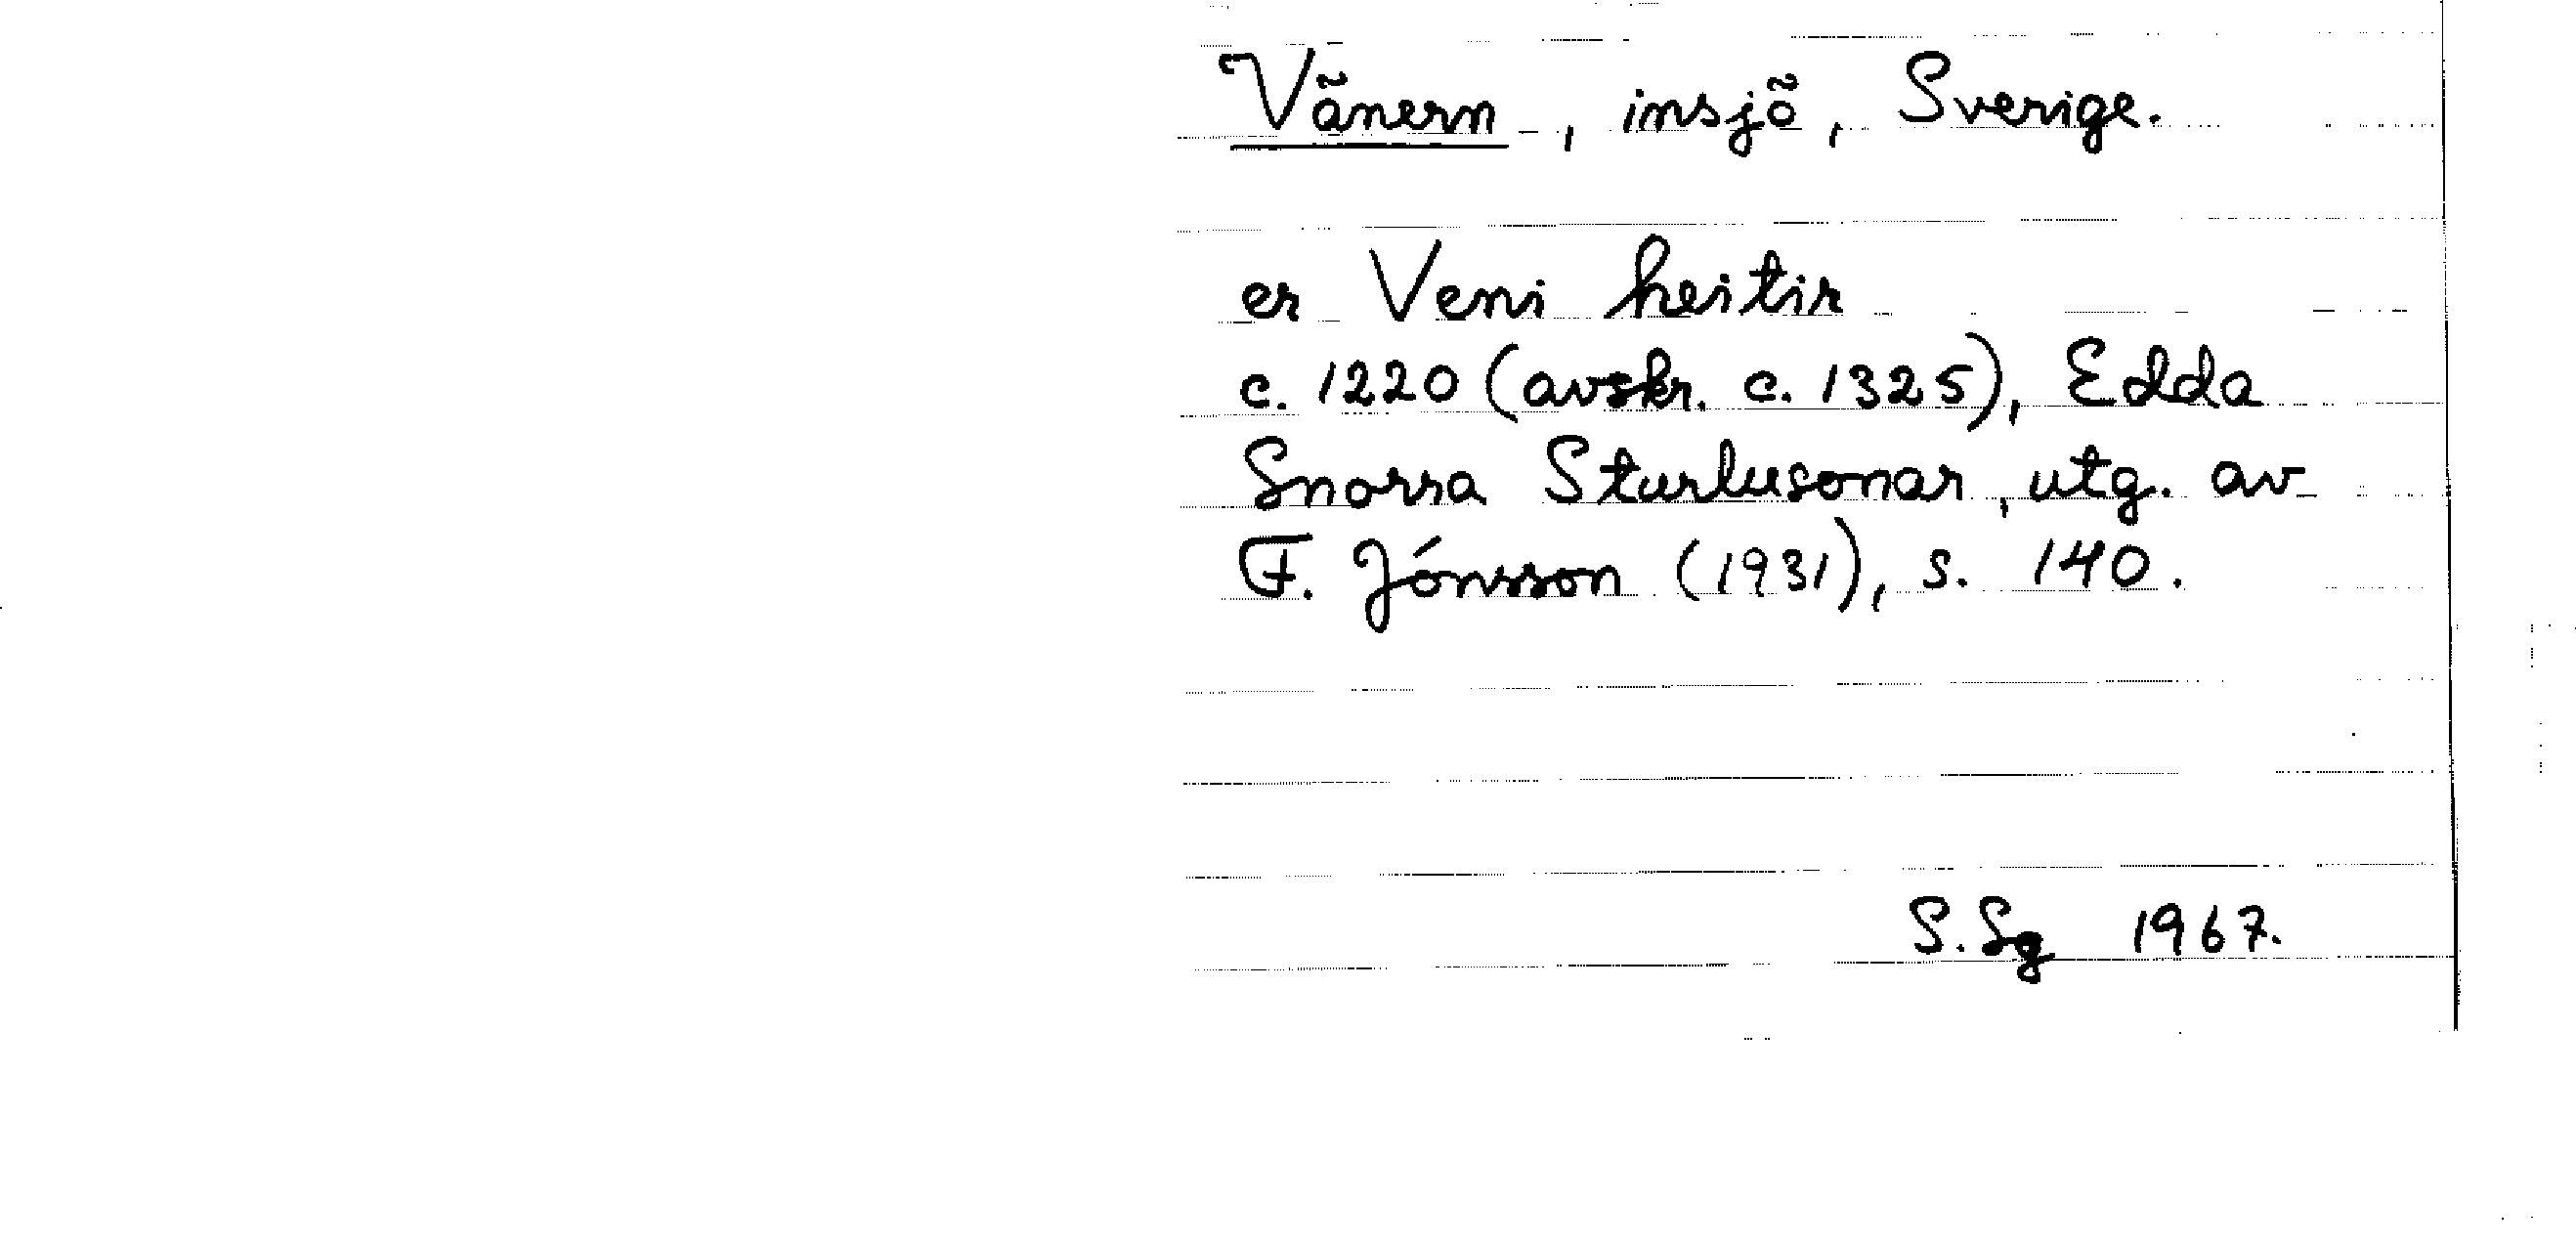 Vänern, insjö, Sverige.
er Veni heitir
c. 1220 (avskr. c. 1325), Edda
Snorra Sturlusonar, utg. av
F. Jónsson (1931), s. 140.
S. Sg 1967.